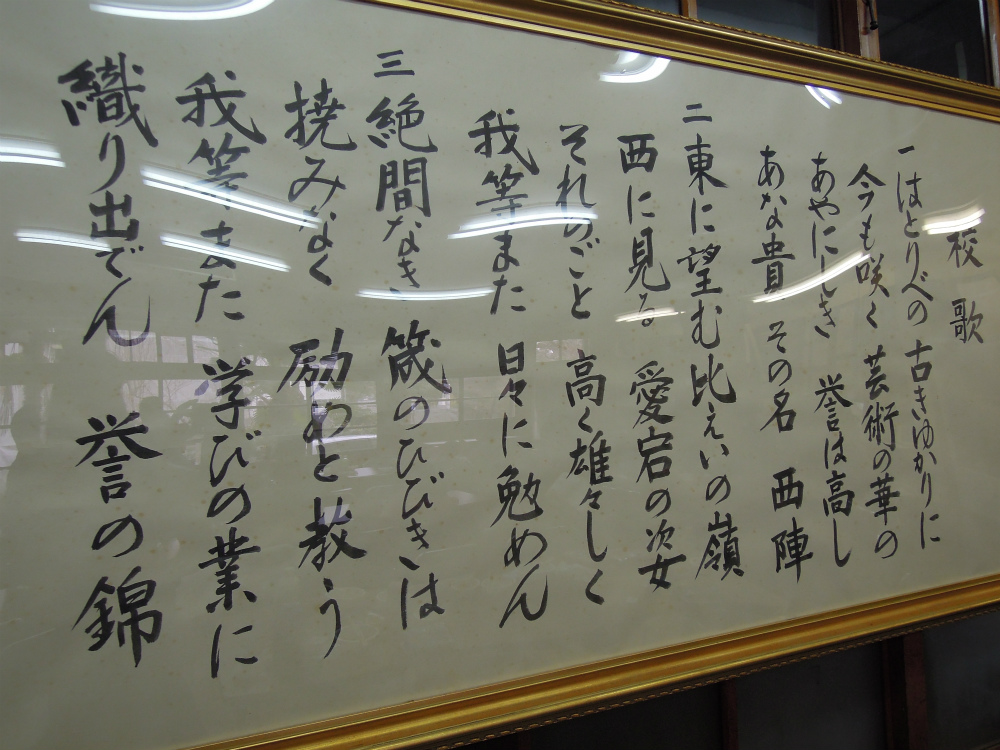 校歌
一 はとりべの 古きゆかりに
今も咲く 芸術の華の
あやにしき 誉は高し
あな貴 その名 西陣
二 東に望む 比えいの嶺
西に見る 愛宕の姿
それのごと 高く雄々しく
我等また 日々に勉めん
三 絶間なき 筬のひびきは
撓みなく 励めと教う
我等また 学びの業に
織り出でん 誉の錦